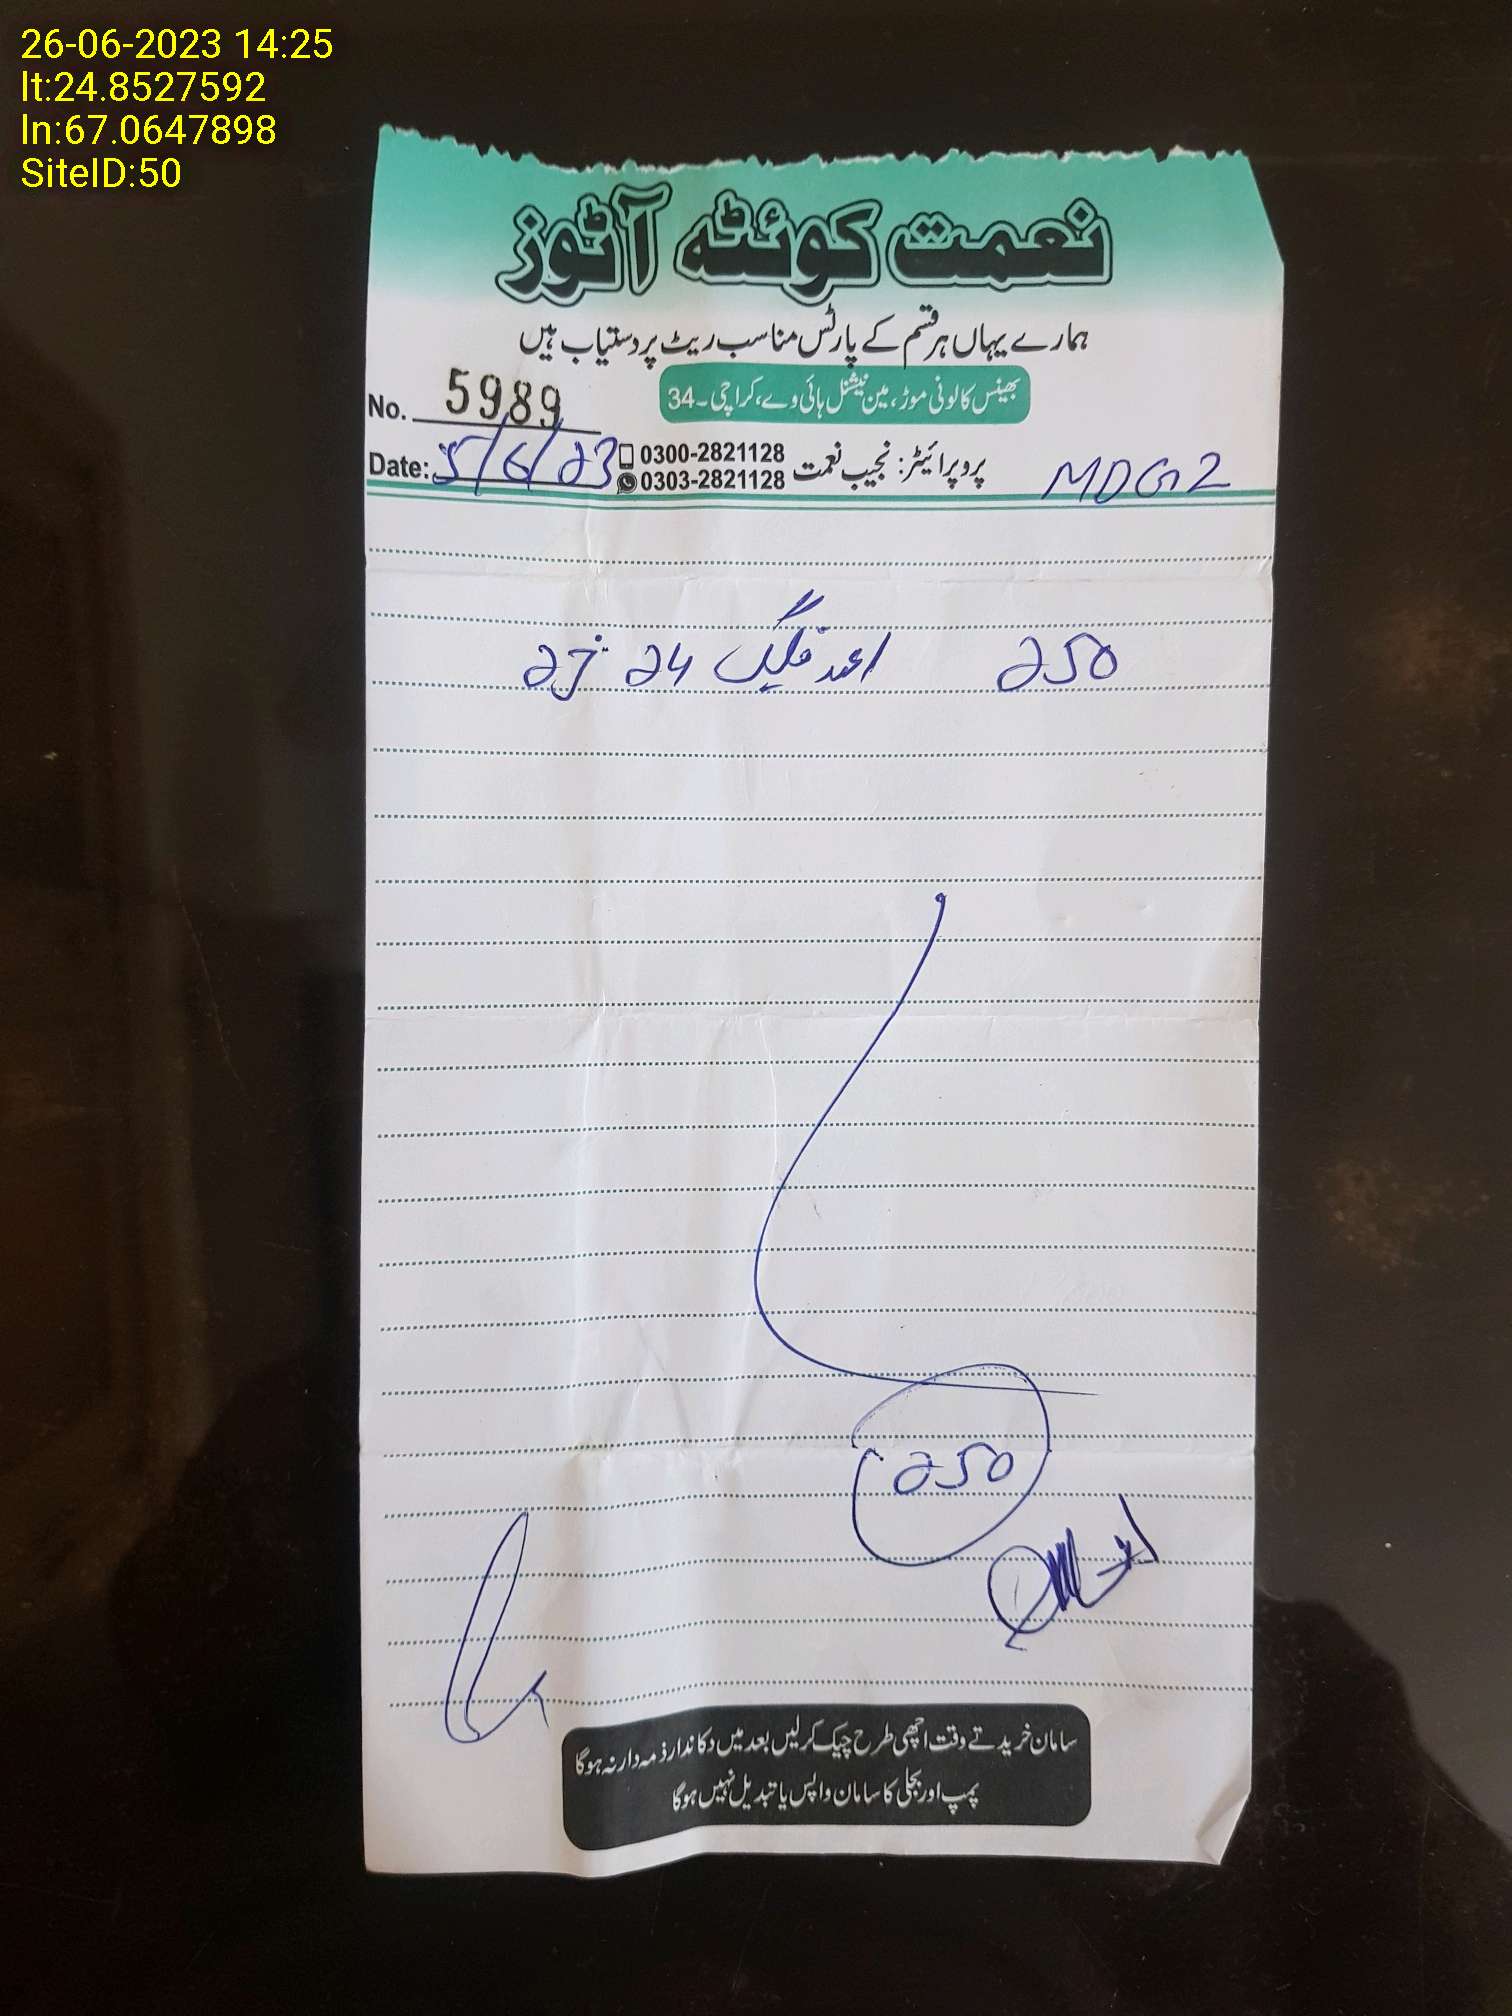 26-06-2023 14:25
lt:24.8527592
ln:67.0647898
SiteID:50
نعمت کوئٹہ آٹوز
ہمارے یہاں ہر قسم کے پارٹس مناسب ریٹ پر دستیاب ہیں
No. 5989
بھینس کالونی موڑ، مین نیشنل ہائی وے، کراچی۔34
Date: 5/6/23
0300-2821128
0303-2821128
پروپرائیٹر: نجیب نعمت
MDG2
24
250
250
سامان خریدتے وقت اچھی طرح چیک کرلیں بعد میں دکاندار ذمہ دار نہ ہوگا
پمپ اور بجلی کا سامان واپس یا تبدیل نہیں ہوگا